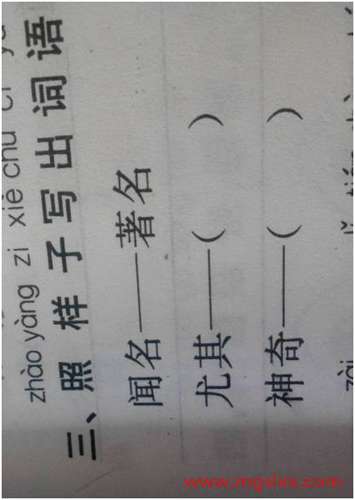 zhào yàng zi xiě chū cí yǔ
三、照样子写出词语
闻名——著名
尤其——(    )
神奇——(    )
www.mgslxx.com